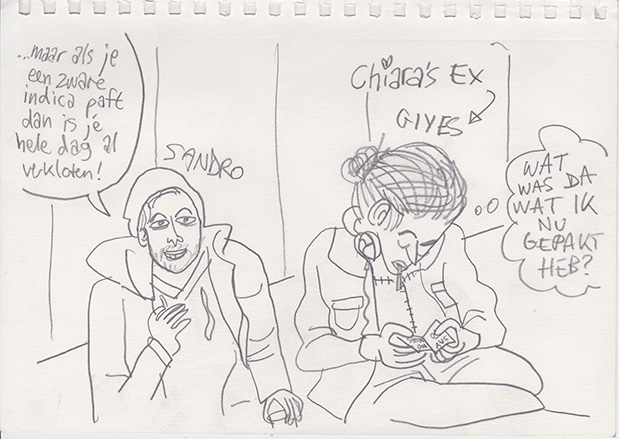 ...maar als je
een zware
indica paft
dan is je
hele dag al
verkloten!
SANDRO
Chiara's Ex
GIYES
WAT
WAS DA
WAT IK
NU
GEPAKT
HEB?